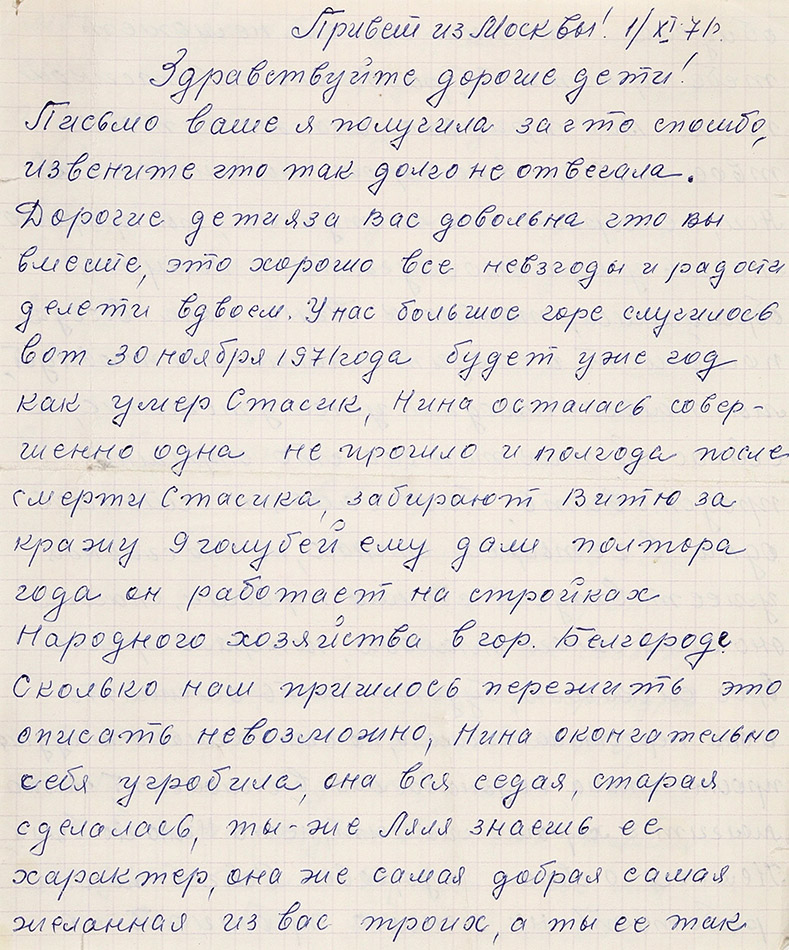 Привет из Москвы! 1/XI-71г.
Здравствуйте дорогие дети!
Письмо ваше я получила за что спосибо,
извените что так долго не отвечала.
Дорогие дети я за вас довольна что вы
вместе, это хорошо все невзгоды и радости
делети вдвоем. У нас большое горе случилось
вот 30 ноября 1971 года будет уже год
как умер Стасик, Нина осталась совер-
шенно одна не прошло и полгода после
смерти Стасика, забирают Витю за
кражу 9 голубей ему дали полтора
года он работает на стройках
Народного хозяйства в гор. Белгороде.
Сколько нам пришлось пережить это
описать невозможно, Нина окончательно
себя угробила, она вся седая, старая
сделалась, ты-же Ляля знаешь ее
характер, она же самая добрая самая
желанная из вас троих, а ты ее так